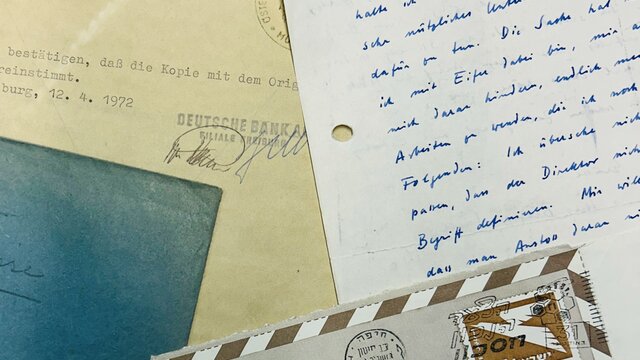 bestätigen, daß die Kopie mit dem Orig
reinstimmt.
burg, 12. 4. 1972
DEUTSCHE BANK A
FILIALE
halte ich
sche nützliches Unter
dafür zu tun. Die Sache hat
ich mit Eifer dabei bin, mir a
mich daran hindern, endlich me
Arbeiten zu wenden, die ich noch
Folgenden: Ich übersehe nich
passen, dass der Direktor nich
Begriff definieren. Mir will
dass man Anstoss daran ni
חיפה
ישראל